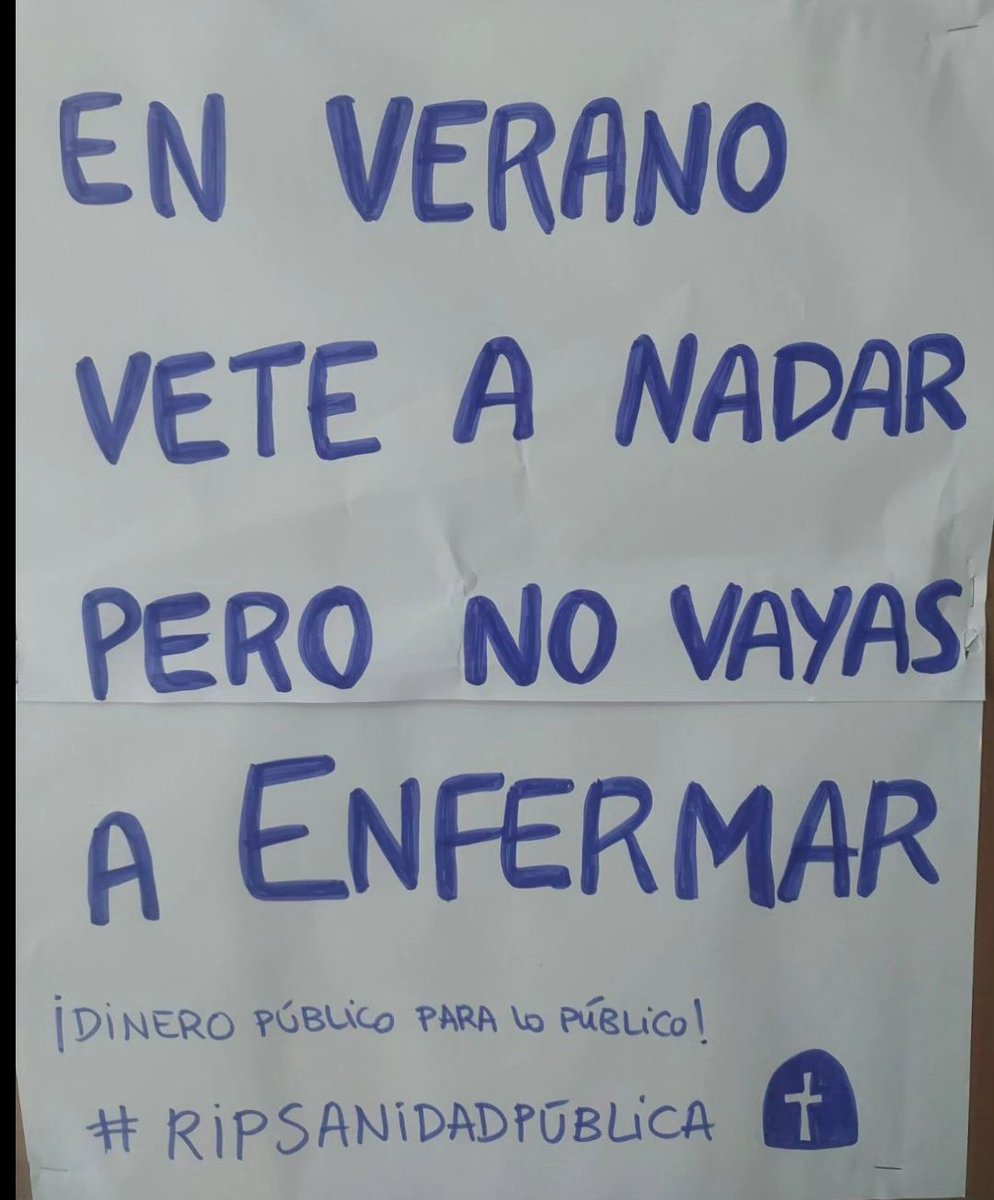 EN VERANO
VETE A NADAR
PERO NO VAYAS
A ENFERMAR
¡DINERO PÚBLICO PARA LO PÚBLICO!
#RIPSANIDADPÚBLICA